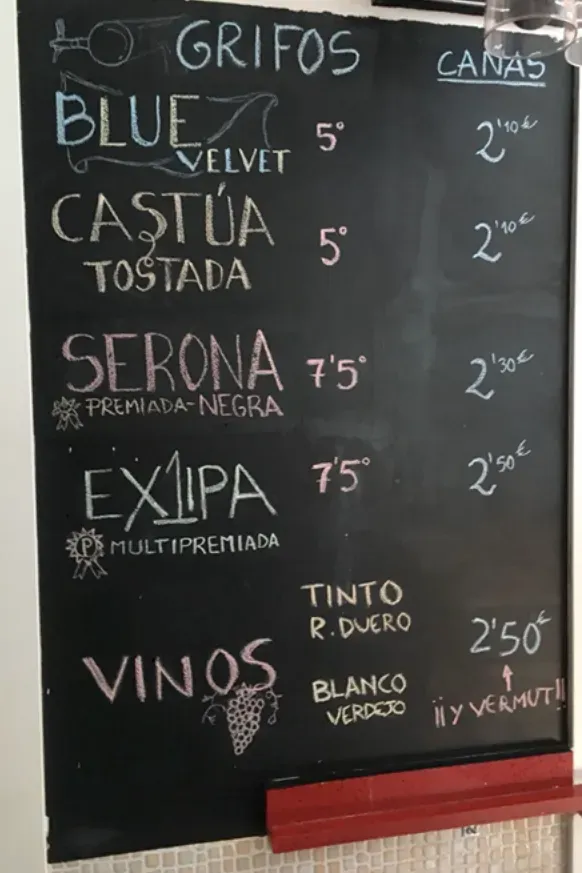 GRIFOS CAÑAS
BLUE
VELVET 5° 2'10€
CASTÚA
TOSTADA 5° 2'10€
SERONA 7'5° 2'30€
PREMIADA-NEGRA
EX1IPA 7'5° 2'50€
P MULTIPREMIADA
TINTO
R. DUERO
VINOS 2'50€
BLANCO
VERDEJO
¡¡Y VERMUT!!